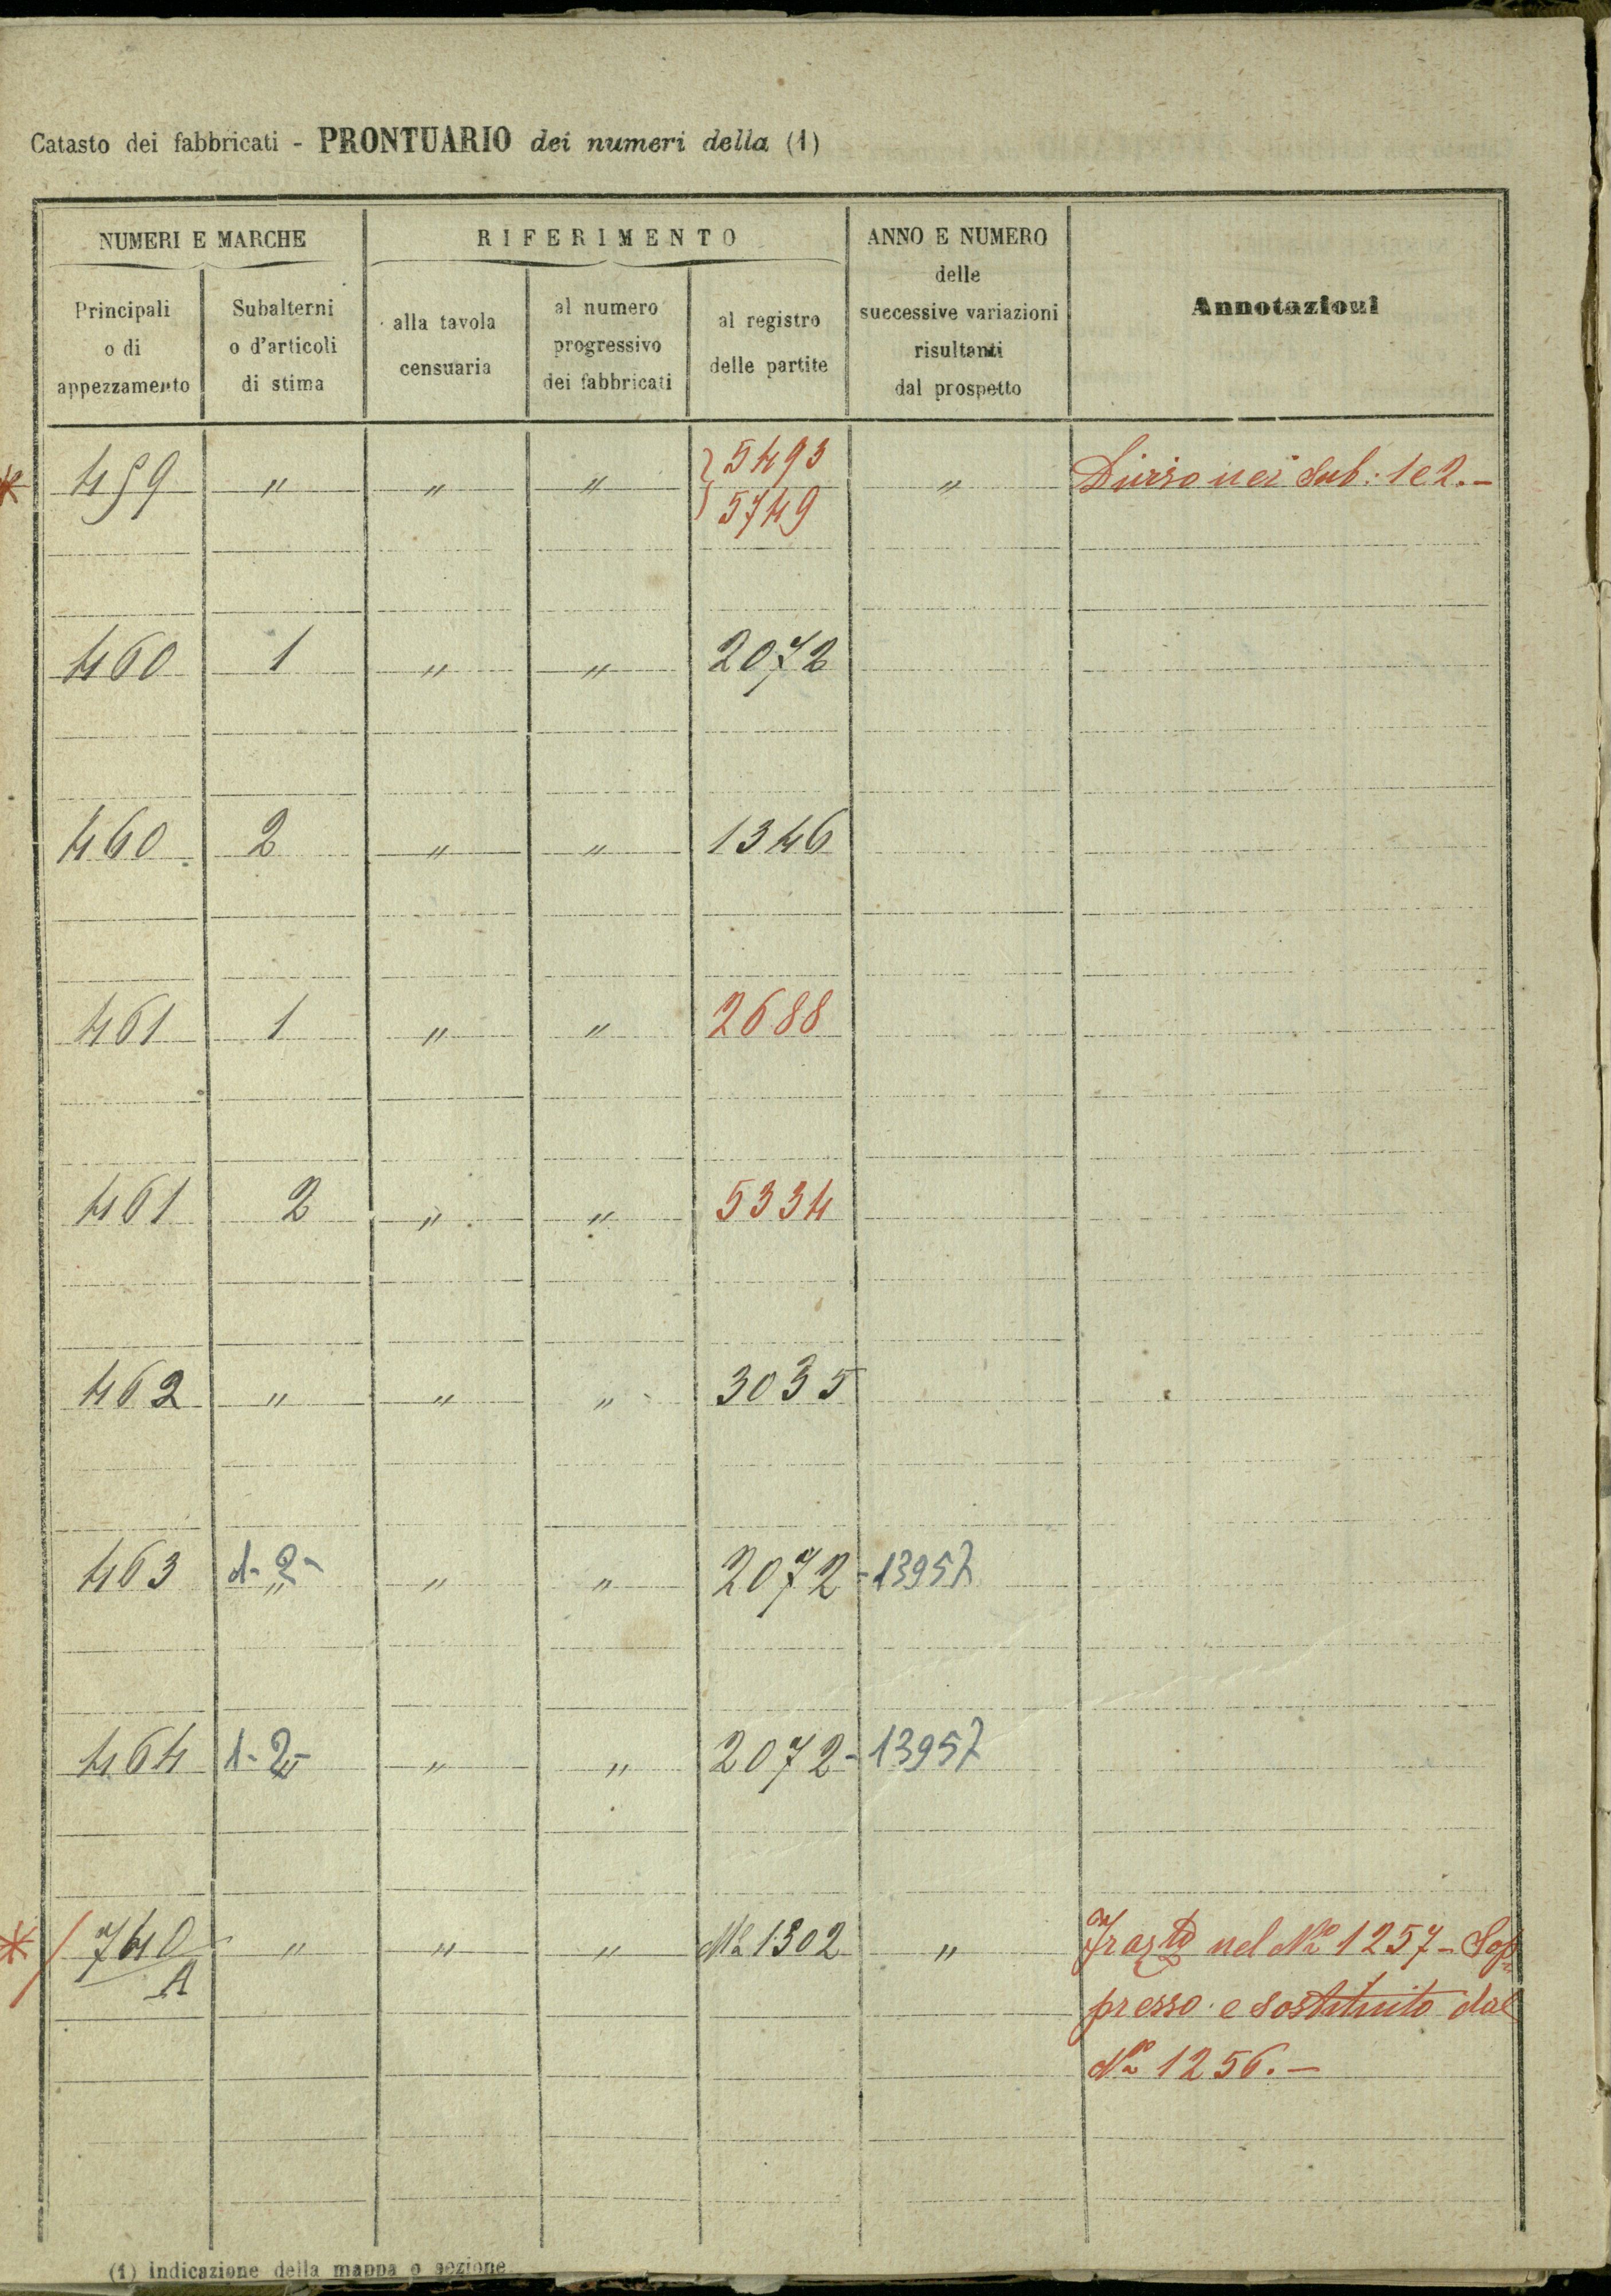 Catasto dei fabbricati - PRONTUARIO dei numeri della (1)
NUMERI E MARCHE
RIFERIMENTO
ANNO E NUMERO
delle
successive variazioni
risultanti
dal prospetto
Annotazioni
Principali
o di
appezzamento
Subalterni
o d'articoli
di stima
alla tavola
censuaria
al numero
progressivo
dei fabbricati
al registro
delle partite
* 459 " " " } 5493 " Diviso nei Sub: 1 e 2.-
5749
460 1 " " 2072
460 2 " " 1346
461 1 " " 2688
461 2 " " 5334
462 " " " 3035
463 1-2- " " " 2072 - 13957
464 1-2- " " 2072 - 13957
* / 740 " " " No 1302 " nel No 1257 - Sop=
A presso e sostituito dal
No 1256.-
(1) indicazione della mappa o sezione